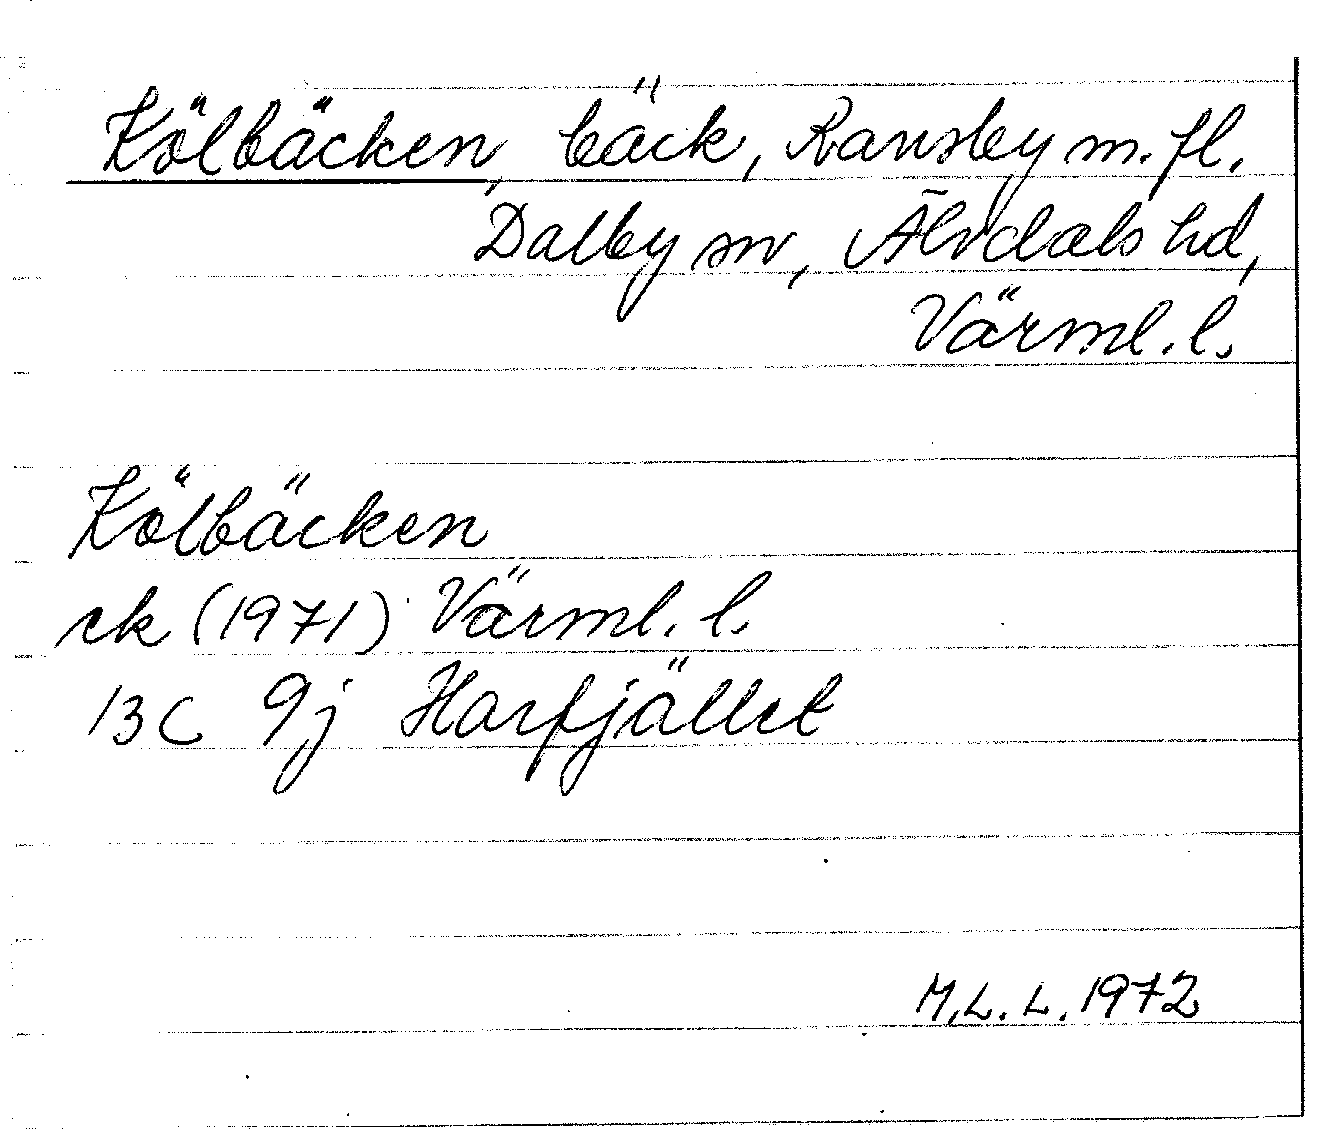 Kölbäcken, bäck, Ransby m. fl.
Dalby sn, Älvdals hd,
Värml. l.
Kölbäcken
ek (1971) Värml. l.
13C 9j Horrfjället
M.L.L. 1972